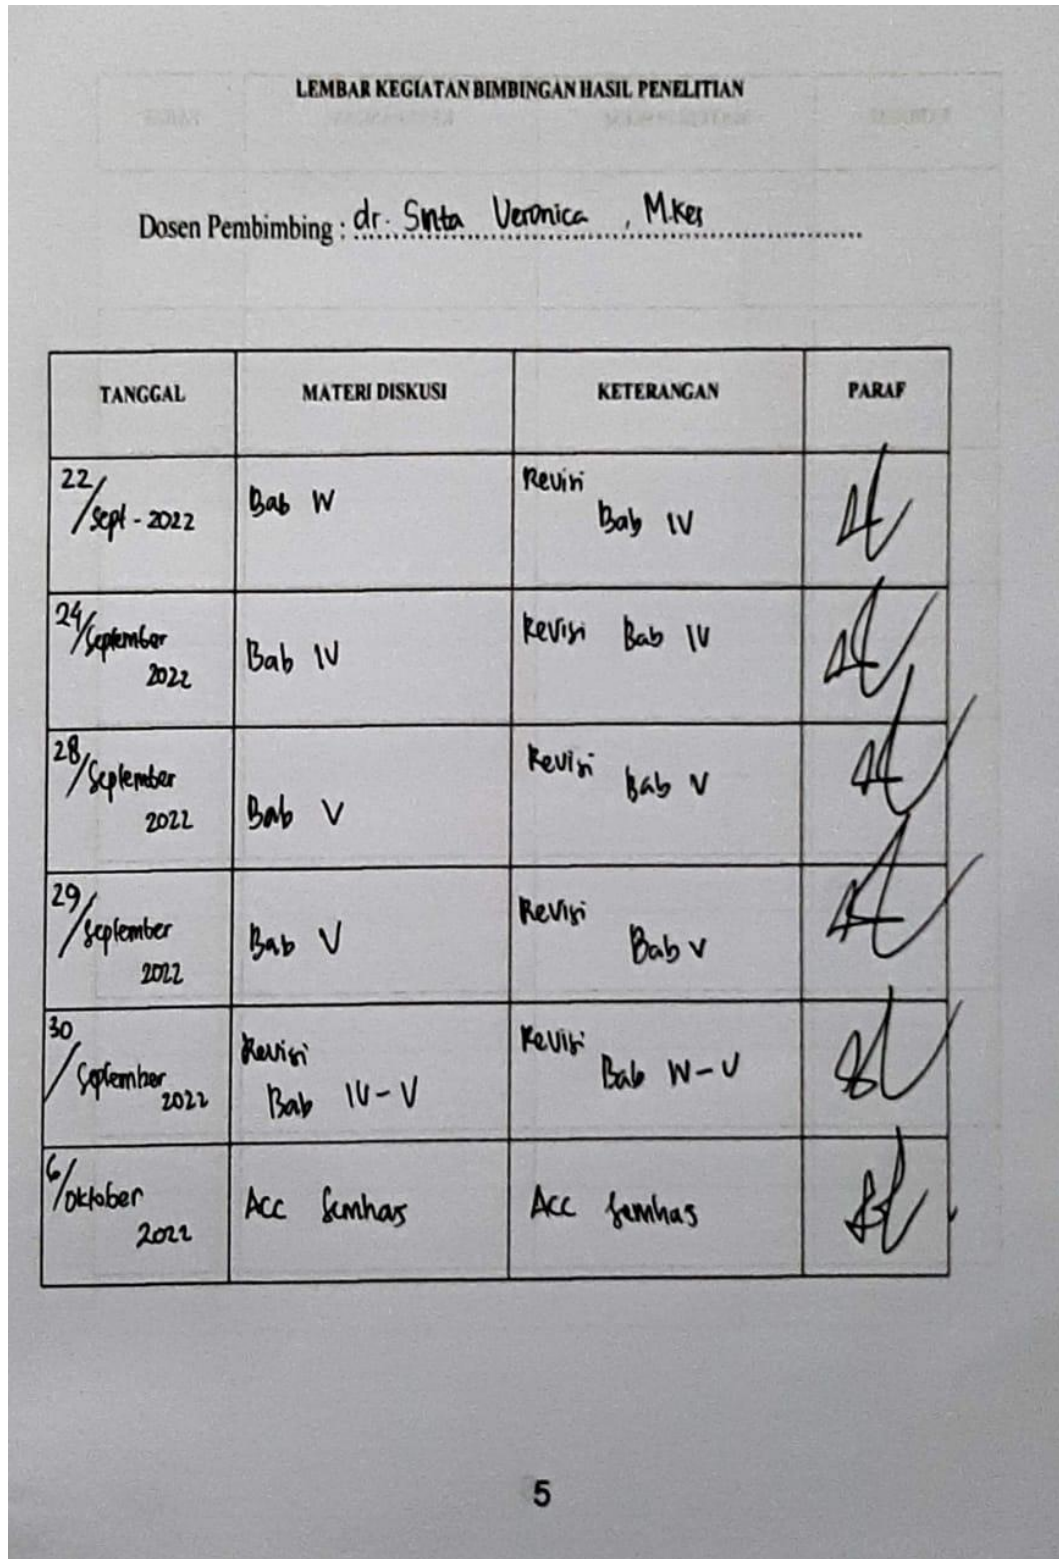 LEMBAR KEGIATAN BIMBINGAN HASIL PENELITIAN
Dosen Pembimbing : dr. Sinta Veronica , M.Kes
TANGGAL MATERI DISKUSI KETERANGAN PARAF
22/ Sept - 2022
Bab IV
Revisi
Bab IV
24/ September
2022
Bab IV
Revisi Bab IV
28/ September
2022
Bab V
Revisi
Bab V
29/ September
2022
Bab V
Revisi
Bab V
30
/ September
2022
Revisi
Bab IV - V
Revisi
Bab IV - V
6/ Oktober
2022
ACC Semhas
ACC Semhas
5